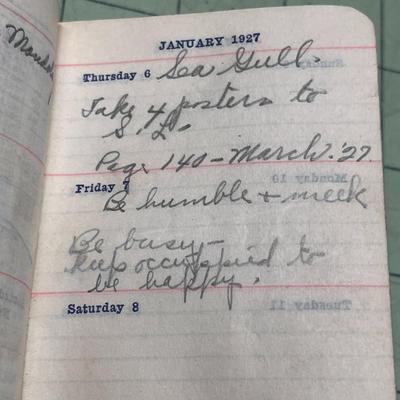 JANUARY 1927
Thursday 6 Sea Gull.
Take 4 posters to
S. L.
Page 140 - March. '27
Friday 7
Be humble + meek
Be busy -
keep occuppied to
be happy.
Saturday 8
Monday 10
Tuesday 11